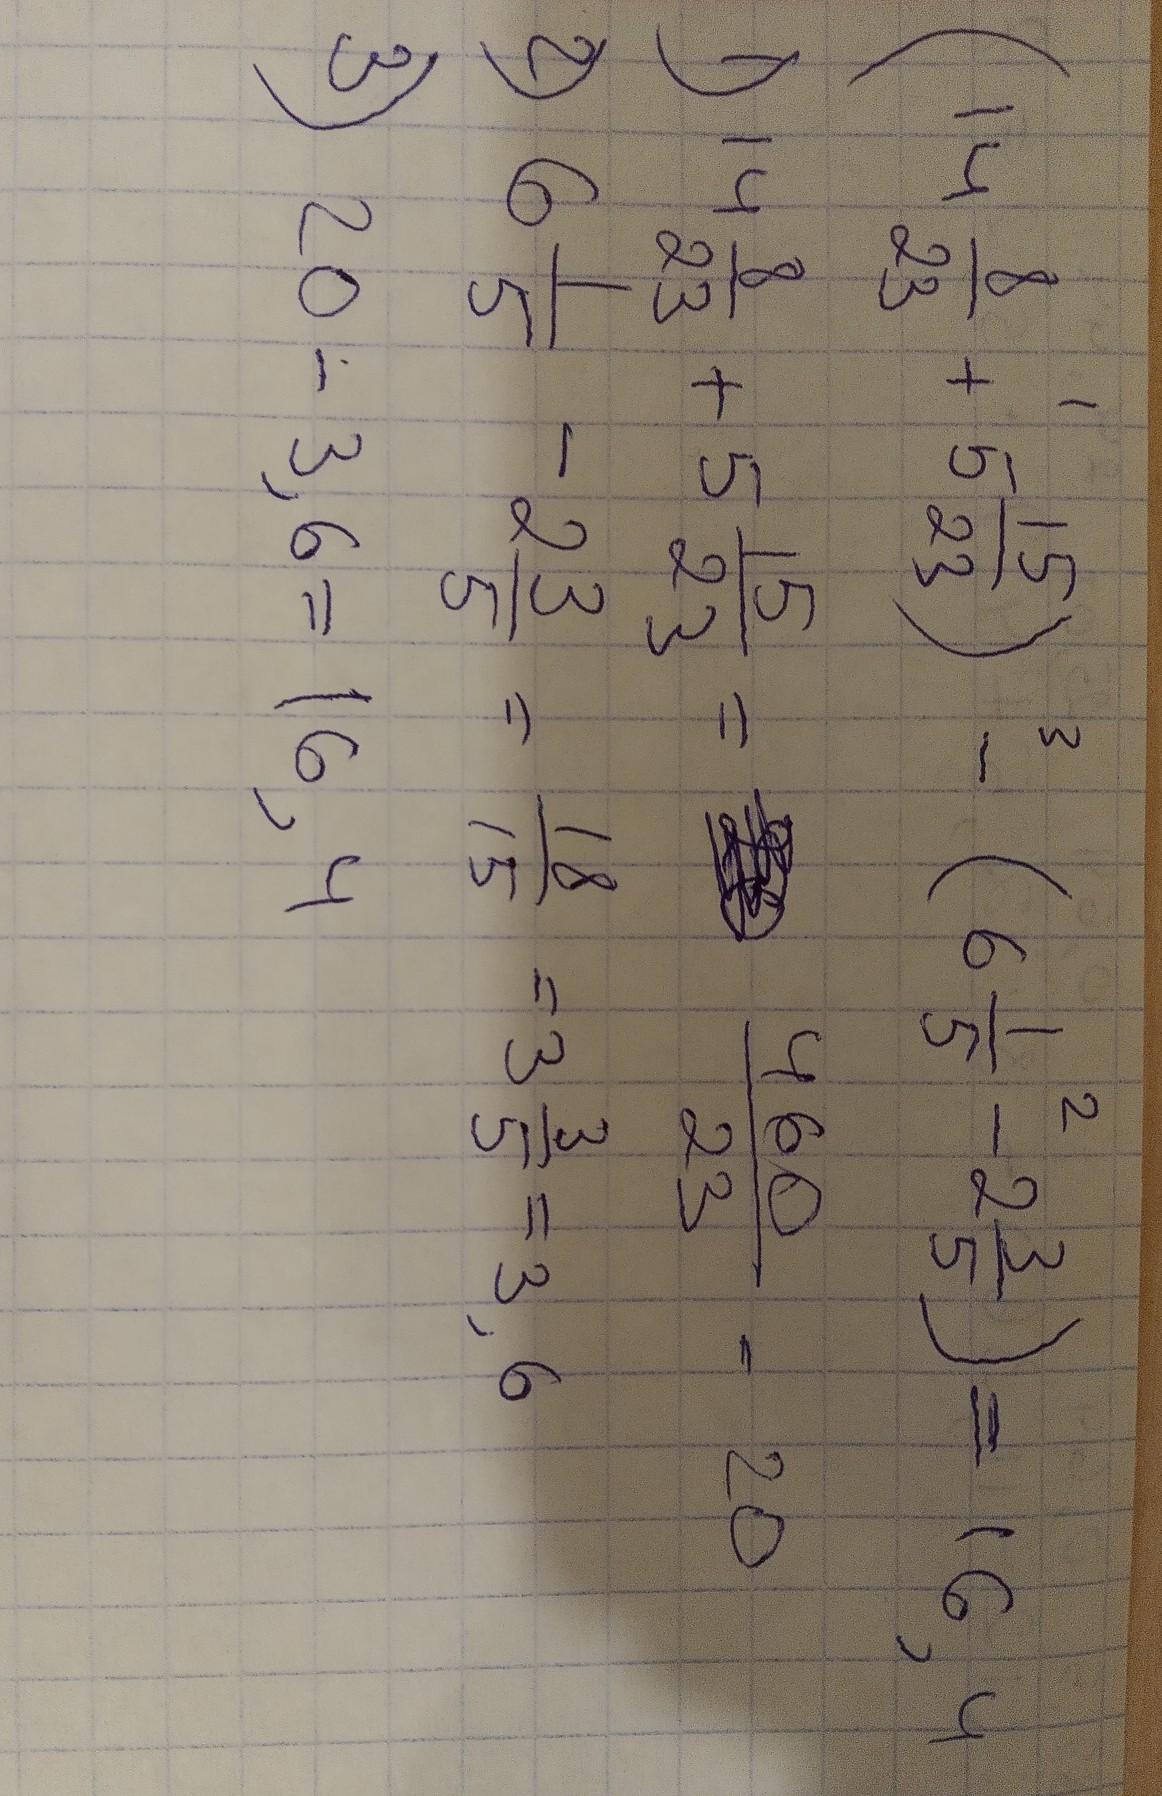 (14 8/23 +¹ 5 15/23) -³ (6 1/5 -² 2 3/5) = 16,4
1) 14 8/23 + 5 15/23 = 460/23 = 20
2) 6 1/5 - 2 3/5 = 18/15 = 3 3/5 = 3,6
3) 20 - 3,6 = 16,4